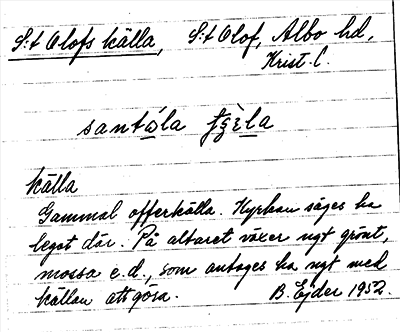 S:t Olofs källa, S:t Olof, Albo hd,
Krist. l.
santála
källa
Gammal offerkälla. Kyrkan säges ha
legat där. På altaret växer ngt grönt,
mossa e.d., som antages ha ngt med
källan att göra. B. Ejder 1952.